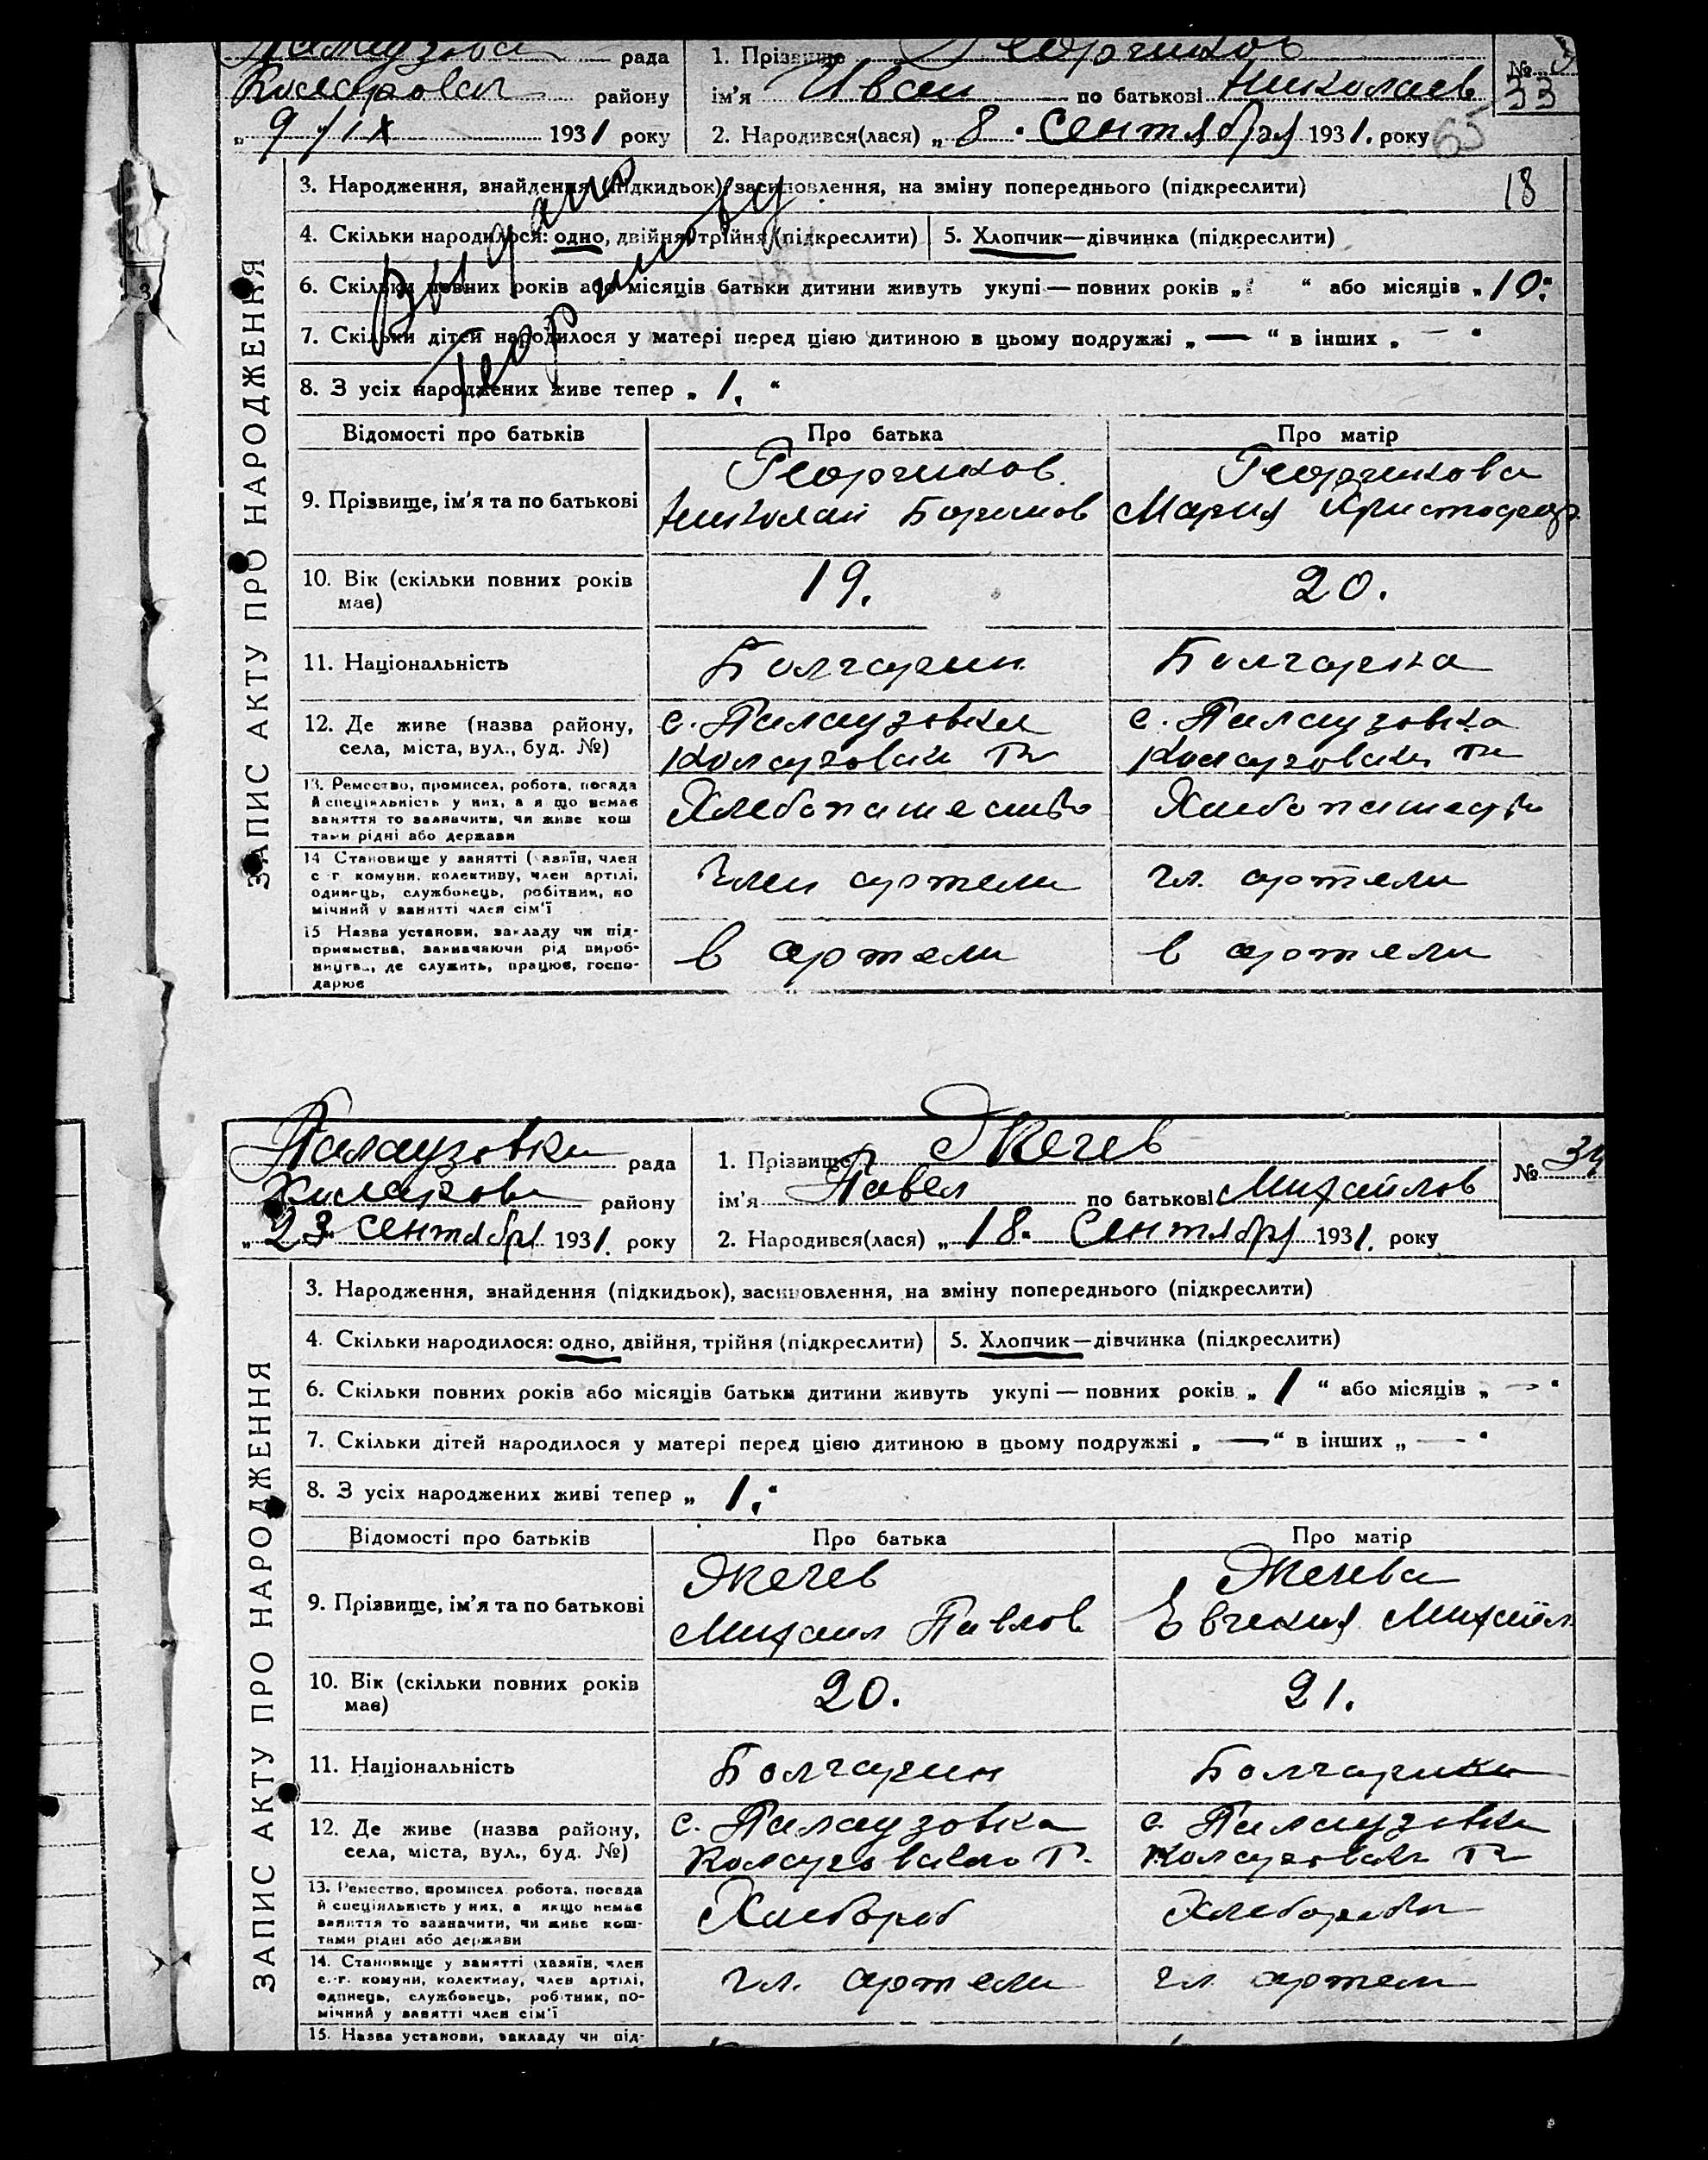 рада
району
„ 9 / IX 1931 року
1. Прізвище
ім'я Иван по батькові Николаев
2. Народився(лася) „ 8. Сентября 1931. року
№
33
65
18
ЗАПИС АКТУ ПРО НАРОДЖЕННЯ
3. Народження, знайдення (підкидьок), засиновлення, на зміну попереднього (підкреслити)
4. Скільки народилося: одно, двійня, трійня (підкреслити)
5. Хлопчик—дівчинка (підкреслити)
6. Скільки повних років або місяців батьки дитини живуть укупі — повних років „ “ або місяців „ 10. “
7. Скільки дітей народилося у матері перед цією дитиною в цьому подружжі „ — “ в інших „ — “
8. З усіх народжених живе тепер „ 1. “
Видано
Відомості про батьків
Про батька
Про матір
9. Прізвище, ім'я та по батькові
Николай
Мария
10. Вік (скільки повних років
має)
19.
20.
11. Національність
Болгарин
Болгарка
12. Де живе (назва району,
села, міста, вул., буд. №)
с. Палаузовка
с. Палаузовка
13. Ремество, промисел, робота, посада
й спеціяльність у них, а я що немає
заняття то зазначити, чи живе кош
тами рідні або держави
Хлебопашество
Хлебопашество
14 Становище у занятті (хазяїн, член
с г. комуни, колективу, член артілі,
одинець, службовець, робітник, по
мічний у занятті член сім'ї
Член артели
чл. артели
15 Назва установи, закладу чи під-
приємства, зазначаючи рід вироб-
ництва, де служить, працює, госпо-
дарює
в артели
в артели
Палаузовка рада
району
„ 23 сентября 1931. року
1. Прізвище Якечев
ім'я Павел по батькові Михайлов
2. Народився(лася) „ 18. Сентября 1931. року
№ 34
ЗАПИС АКТУ ПРО НАРОДЖЕННЯ
3. Народження, знайдення (підкидьок), засиновлення, на зміну попереднього (підкреслити)
4. Скільки народилося: одно, двійня, трійня (підкреслити)
5. Хлопчик—дівчинка (підкреслити)
6. Скільки повних років або місяців батьки дитини живуть укупі — повних років „ 1 “ або місяців „ — “
7. Скільки дітей народилося у матері перед цією дитиною в цьому подружжі „ — “ в інших „ — “
8. З усіх народжених живі тепер „ 1. “
Відомості про батьків
Про батька
Про матір
9. Прізвище, ім'я та по батькові
Михаил Павлов
Евгения
10. Вік (скільки повних років
має)
20.
21.
11. Національність
Болгарин
12. Де живе (назва району,
села, міста, вул., буд. №)
с. Палаузовка
с. Палаузовка
13. Ремество, промисел робота, посада
й спеціяльність у них, а якщо немає
заняття то зазначити, чи живе кош-
тами рідні або держави
Хлебороб
14. Становище у занятті (хазяїн, член
с.-г. комуни, колективу, член артілі,
одинець, службовець, робітник, по-
мічний у занятті член сім'ї
чл. артели
чл. артели
15. Назва установи, закладу чи під-